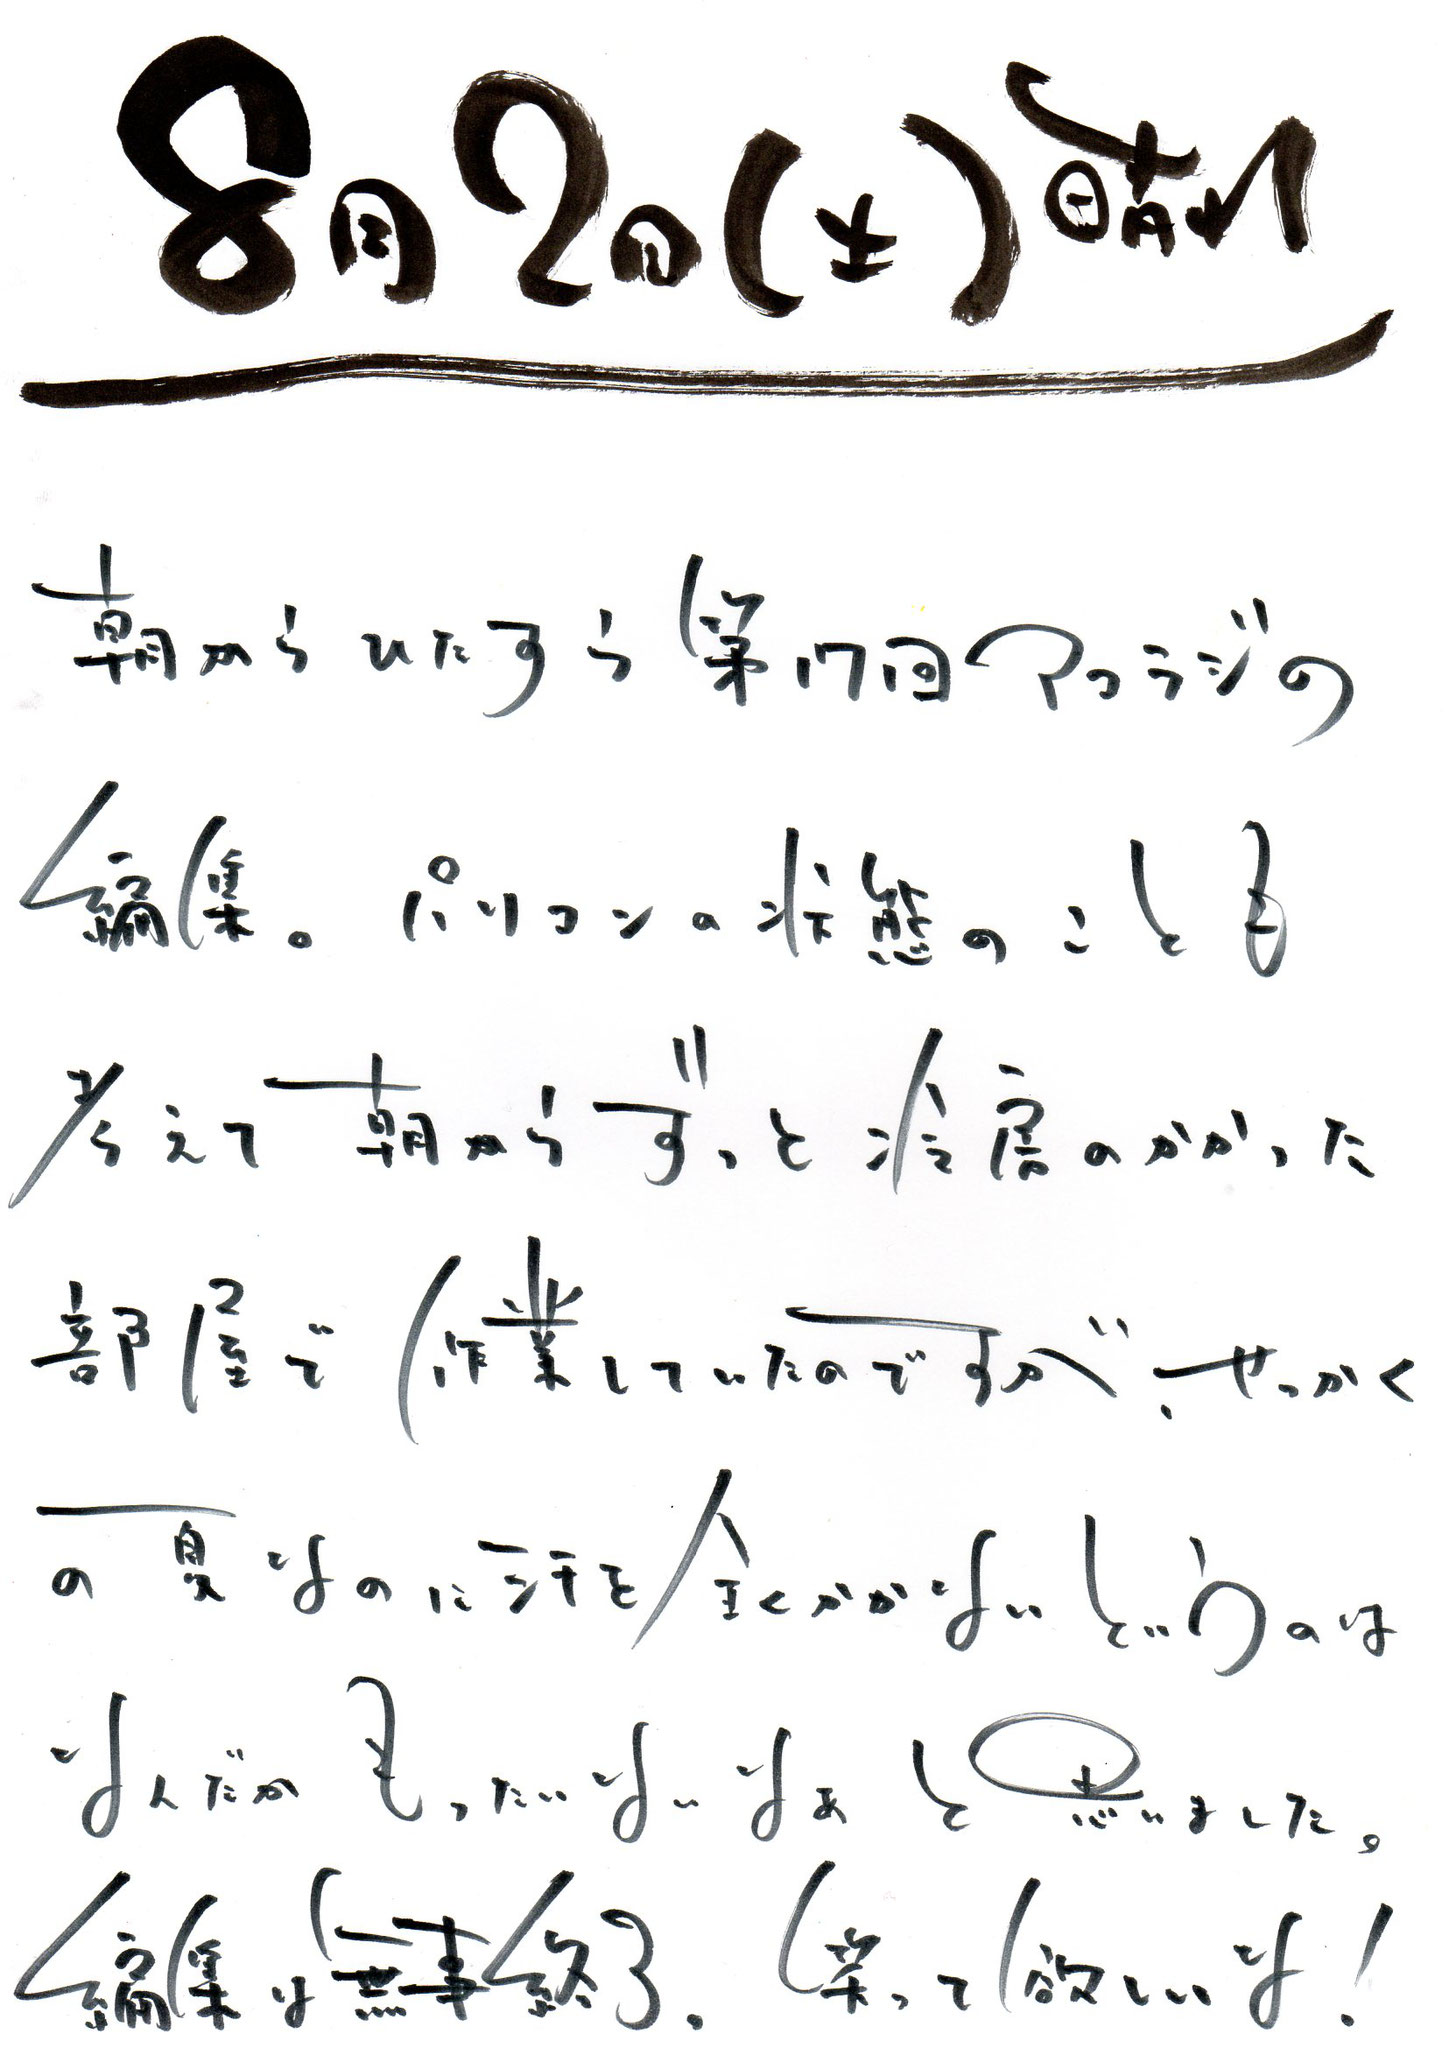 8月2日(土)晴れ
朝からひたすら第17回マコラジの
編集。パソコンの状態のことも
考えて朝からずっと冷房のかかった
部屋で作業していたのですが、せっかく
の夏なのに汗を全くかかないというのは
なんだかもったいないなぁと思いました。
編集は無事終了。笑って欲しいな!